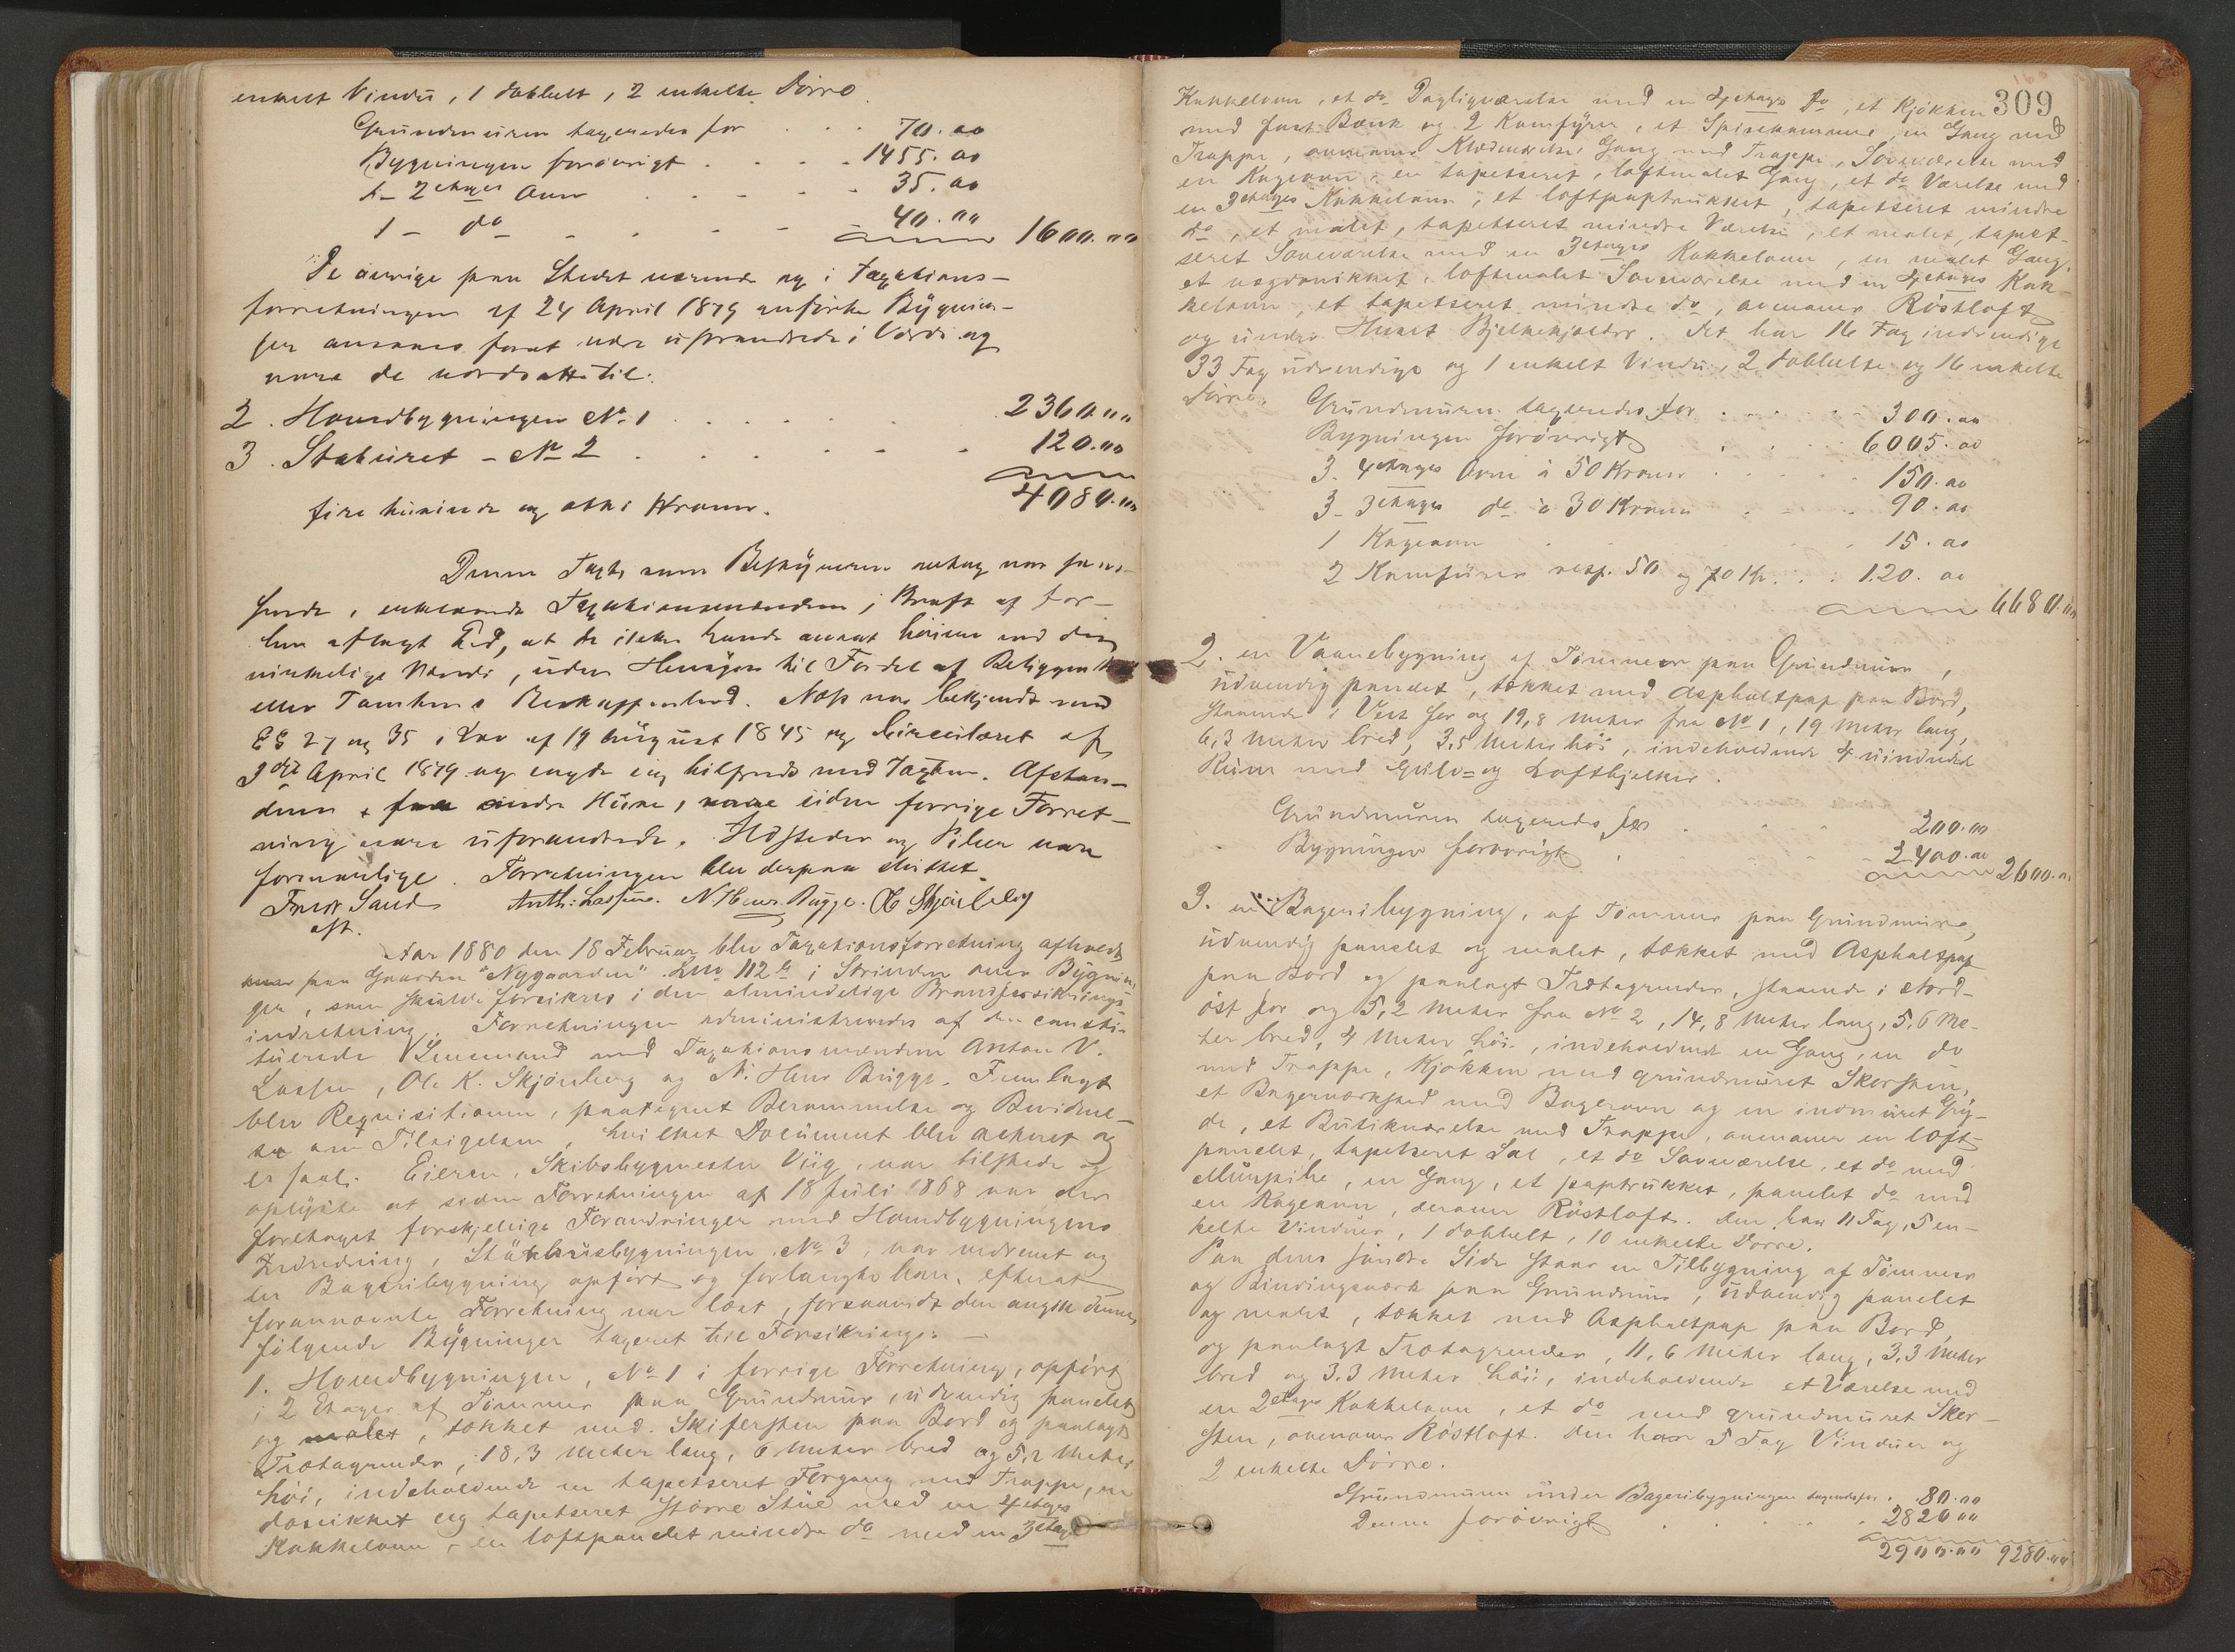 enkelt Vindu, 1 dobbelt, 2 enkelte Dørre.
Grundmuren taxeredes for . . . 70.00
Bygningen forøvrigt . . . . 1455.00
1 - 2 etages Ovn . . . . 35.00
1 - do - - - - 40.00
1600.00
De øvrige paa Stedet værende og i Taxations-
forretningen af 24 April 1879 anførte Bygnin-
ger ansaaes forat være uforandrede i Værdi og
vare de værdsatte til:
2. Hovedbygningen No. 1 . . . . 2360.00
3. Stabüret - No 2 . . . . 120.00
4080.00
fire tüsinde og otti Kroner.
Denne Taxt, som Bestyreren antog var pas-
sende, erklærede Taxationsmændene i Kraft af før-
hen aflagt Ed, at de ikke kunde ansat høiere end den
virkelige Værdi, uden Hensyn til Fordel af Beliggenhed
eller Tomtens Beskaffenhed. Næss var bekjendt med
§§ 27 og 35 i Lov af 19 August 1845 og Circulæret af
3die April 1879 og sagde sig tilfreds med Taxten. Afstan-
dene fra andre Huse, vare siden forrige Forret-
ning vare uforandrede. Ildsteder og Piber vare
forsvarlige. Forretningen blev derpaa sluttet.
Anth: Lassen. N Hens Bugge. O Skjønberg
Aar 1880 den 18 Februar blev Taxationsforretning afholdt
paa Gaarden "Nygaarden" Lno 112 b i Strinden over Bygnin-
ger, som skulde forsikres i den almindelige Brandforsikrings-
indretning. Forretningen administreredes af den consti-
tuerede Lensmand med Taxationsmændene Anton V.
Lassen, Ole K. Skjønberg og N. Hens Bugge. Fremlagt
blev Requisitionen, paategnet Berammelse og Bevidnel-
se om Tilsigelsen, hvilket Document blev acteret og
er saal. Eieren, Skibsbygmester Viig, var tilstede og
oplyste at siden Forretningen af 18 Juli 1868 var der
foretaget forskjellige Forandringer med Hovedbygningens
Indredning, Stühüsbygningen No 3, var nedrevet og
en Bageribygning opført og forlangte han, efterat
forannævnte Forretning var læst, forsaavidt den angik denne,
følgende Bygninger taxeret til Forsikring: —
1. Hovedbygningen, No 1 i forrige Forretning, opført
i 2 Etager af Tømmer paa Grundmur, udvendig panelet
og malet, tækket med Skifersten paa Bord og paalagt
Trætagrender, 18,3 Meter lang, 6 Meter bred og 5,2 Meter
høi, indeholdende en tapetseret Forgang med Trappe, en
do tapetseret større Stue med en 4 etages
Kakkelovn, en loftpanelet mindre do med en 3 etages
309
Kakkelovn, et do Dagligværelse med en 4 etages do, et Kjøkken
med fast Bænk og 2 Komfyrer, et Spisekammer, en Gang med
Trappe, ovenover Klædeværelse, Gang med Trappe, Soveværelse med
en Rugeovn, en tapetseret, loftmalet Gang, et do Værelse med
en 3 etages Kakkelovn, et loftpaptrukket, tapetseret mindre
do, et malet, tapetseret mindre Værelse, et malet, tapet-
seret Soveværelse med en 3 etages Kakkelovn, en malet Gang,
et loftmalet Soveværelse med en 4 etages Kak-
kelovn, et tapetseret mindre do, ovenover Røstloft
og under Huset Bjelkekjelder. Det har 16 Fag indvendige
33 Fag udvendige og 1 enkelt Vindu, 2 dobbelte og 16 enkelte
Dørre.
Grundmuren taxeredes for . . . . 300.00
Bygningen forøvrigt . . . . 6005.00
3. 4 etages Ovne à 50 Kroner . . . 150.00
3 - 3 etages do à 30 Kroner . . . 90.00
1 Rugeovn . . . . 15.00
2 Komfürer resp. 50 og 70 Kr. . . 120.00
6680.00
2. en Vaanebygning af Tømmer paa Grundmur,
udvendig panelet, tækket med Asphaltpap paa Bord,
staaende i Vest for og 19,8 Meter fra No 1, 19 Meter lang,
6,3 Meter bred, 3,5 Meter høi, indeholdende 4 uindredet
Rüm med Gulv- og Loftbjelker.
Grundmuren taxeredes for . . . 200.00
Bygningen forøvrigt . . . 2400.00
2600.00
3. en Bageribygning, af Tømmer paa Grundmur,
udvendig panelet og malet, tækket med Asphaltpap
paa Bord og paalagt Trætagrender, staaende i Nord-
øst for og 5,2 Meter fra No 2, 14,8 Meter lang, 5,6 Me-
ter bred, 4 Meter høi, indeholdende en Gang, en do
med Trappe, Kjøkken med grundmüret Skorsten,
et Bagerværksted med Bagerovn og en indmüret Gry-
de, et Butikværelse med Trappe, ovenover en loft-
panelet, tapetseret Sal, et do Soveværelse, et do med
Mürpibe, en Gang, et paptrukket, panelet do med
en Rugeovn, derover Røstloft. Den har 11 Fag, 5 en-
kelte Vinduer, 1 dobbelt, 10 enkelte Dørre.
Paa dens søndre Side staar en Tilbygning af Tømmer
og Bindingsværk paa Grundmur, udvendig panelet
og malet, tækket med Asphaltpap paa Bord
og paalagt Trætagrender, 11,6 Meter lang, 3,3 Meter
bred og 3.3 Meter høi, indeholdende et Værelse med
en 2 etages Kakkelovn, et do med grundmüret Skor-
sten, ovenover Røstloft. Den har 5 Fag Vinduer og
2 enkelte Dørre.
Grundmuren under Bageribygningen taxeredes for . 80.00
Denne forøvrigt . . . . 2820.00
2900.00 9280.00